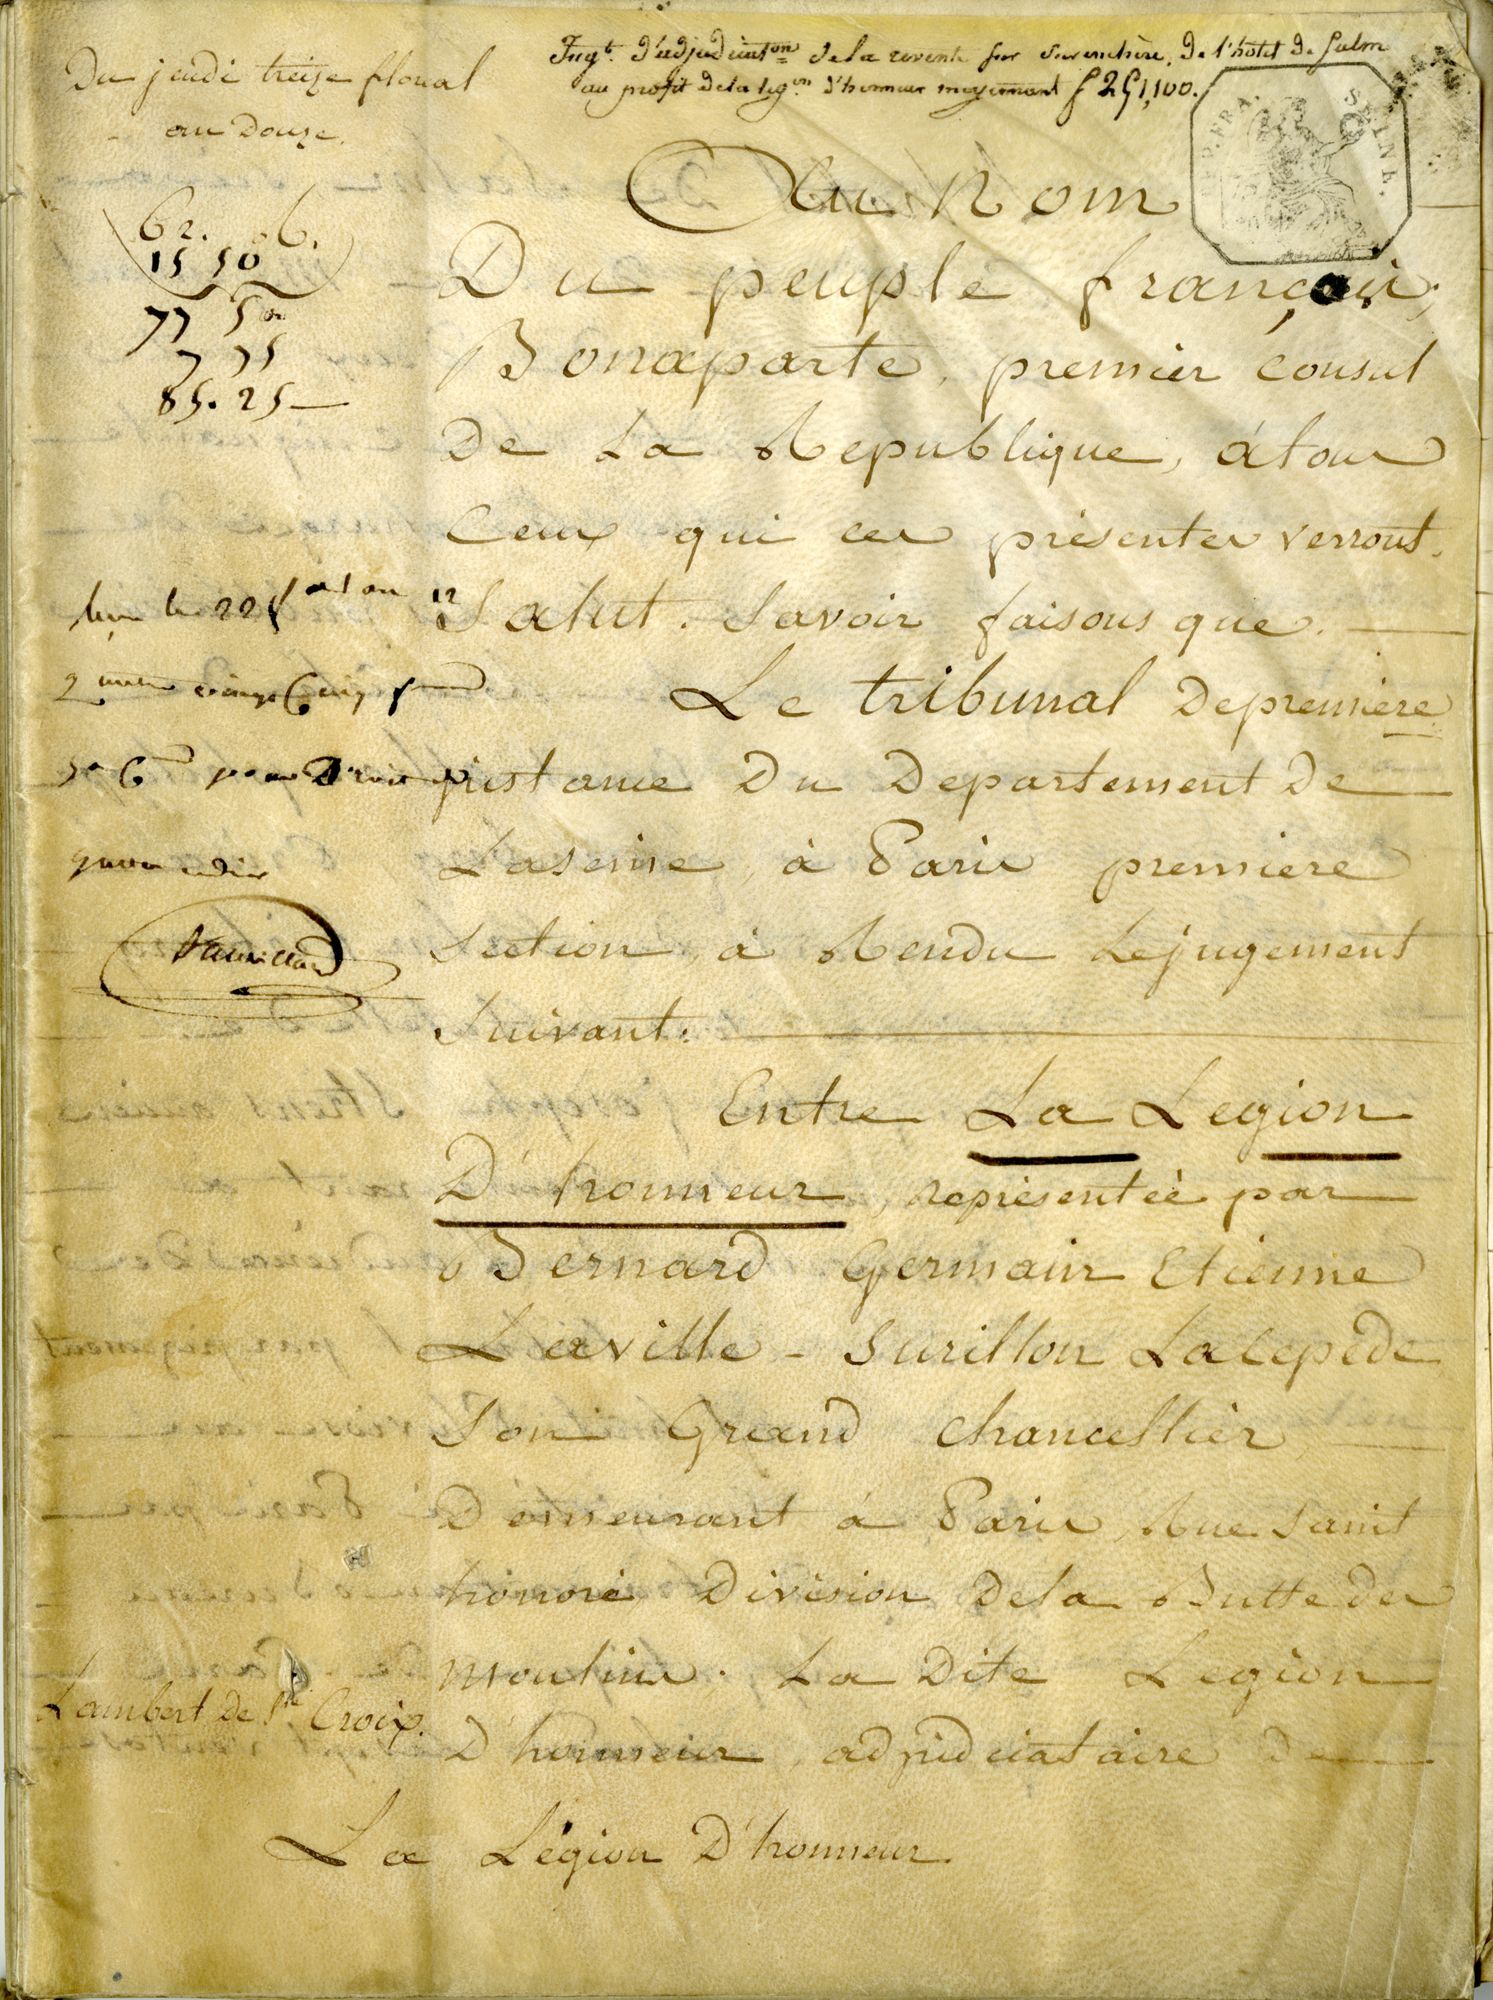 Jugt. d'adjudicaton de la revente sur surenchère, de l'hôtel de Salm
au profit de la légion d'honneur moyennant f 251,100.
Du jeudi treize floreal
an Douze.
REP. FRA. SEINE.
62. 6.
15 50
77 50
7 75
85. 25
Au Nom
Du peuple français,
Bonaparte, premier consul
De La Republique, à tous
Ceux qui ces présentes verront,
Salut. Savoir faisons que.
Le tribunal de premiere
instance Du Departement De
La seine, à Paris premiere
Section, à Rendu Le jugement
Suivant:
Entre La Legion
D'honneur, représentée par
Bernard Germain Etienne
Laville - Surillon Lacepède
Son Grand Chancellier,
Demeurant à Paris, Rue Saint
honoré Division De la Butte des
moulins. La Dite Legion
D'honneur, adjudicataire de
Lambert De Ste Croix.
La Légion D'honneur